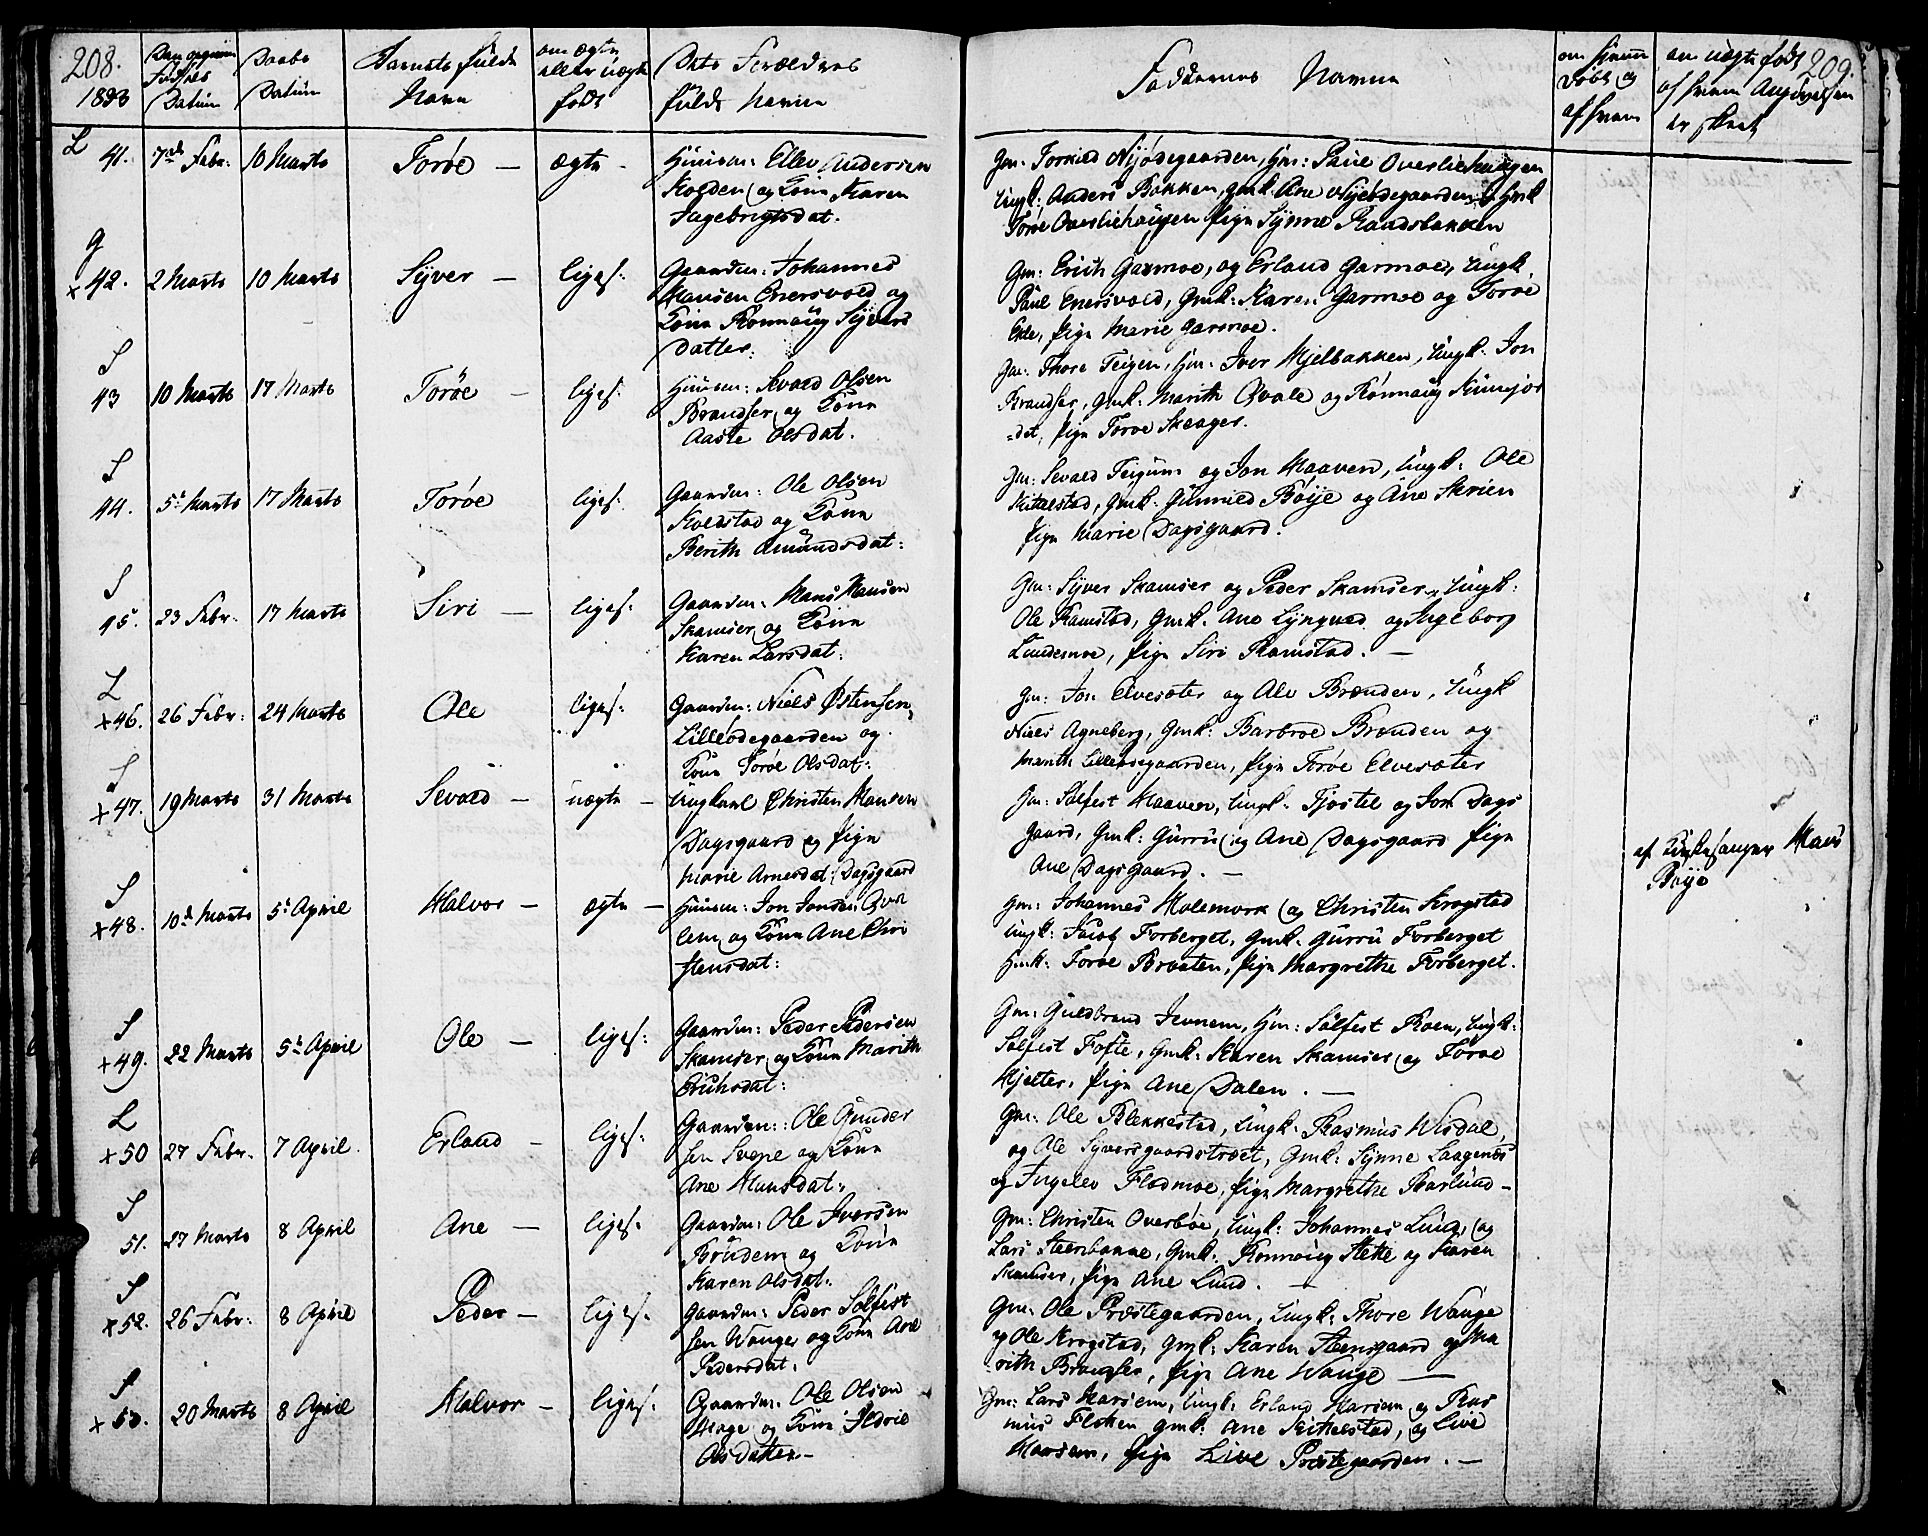 208.
1833
Den opgivne Fødsels Datum
Daabs Datum
Barnets fulde Navn
om ægte eller uægte født
Dets Forældres fulde Navne
Faddernes Navne
209.
L
41. 7de Febr: 10 Marts Toróe — ægte - Huusm: Ellev Andersen
Kolden og Kone Karen
Fagebrigtsdat.
Gm: Torkild Nyödegaarden, Hm: Paul Overliehaugen
Ungk: Anders Bakken, Gmk: Ane Nyeödegaarden, Hmk
Toróe Overliehaugen Pige Synne Raadsbakken
G
+ 42. 2 Marts 10 Marts Syver — liges: Gaardm: Johannes
Hansen Enersvold og
Kone Rønnaug Syvers
datter:
Gm: Erich Garmoe, og Erland Garmoe, Ungk.
Paul Enersvold, Gmk: Karen Garmoe og Toroe
Ede, Pige Marie Garmoe.
S
43 10 Marts 17 Marts Toróe — ligef: Huusm: Sevald Olsen
Brandser, og Kone
Aaste Olsdat.
Gm: Thore Teigen, Hm: Iver Hjelbakken, Ungk. Jon
Brandser, Gmk: Marith Qvale og Rønnaug
=det, Pige Toroe Skeager.
S
44. 5te Marts 17 Marts Toróe ligef: Gaardm: Ole Olsen
Kolstad og Kone
Berith Amundsdat:
Gm: Sevald Teigum og Jon Haaven, Ungk: Ole
Kittelstad, Gmk: Gunnild Bóije og Ane Skrien
Pige Marie Dagsgaard.
S
45. 23 Febr. 17 Marts Siri — ligef: Gaardm: Hans Hansen
Skamser og Kone
Karen Larsdat:
Gm: Syver Skamser og Peder Skamser, Ungk:
Ole Ramstad, Gmk. Ane Lyngved og Ingeborg
Lundemoe, Pige Siri Ramstad. —
L
+46. 26 Febr: 24 Marts Ole ligef: Gaardm: Niels Østensen
Lilleódegaarden og
Kone Toróe Olsdat:
Gm: Jon Elvesæter og Ole Brænden, Ungk
Niels Agneberg, Gmk: Barbroe Brænden og
Marith Lilleódegaarden, Pige Toróe Elvesæter
S
+47. 19 Marts 31 Marts Sevald — uægte — Ungkarl Christen Hansen
Dagsgaard og Pige
Marie Arnesdat: Dagsgaard
Gm: Solfest Haaven, Ungk. Tjostel og Jon Dags
gaard, Gmk: Gurru og Ane Dagsgaard Pige
Ane Dagsgaard. —
af Kirkesanger Hans
Böije
S
+48. 10de Marts 5te April Halvor — ægte — Huusm: Jon Jonsen Qvar
lem og Kone Ane Chri
stensdat:
Gm: Johannes Holemork og Christen Krogstad
Ungk: Jacob Forberget, Gmk. Gurru Forberget
Hmk: Toroe Braaten, Pige Margrethe Forberget.
S
+49. 22 Marts 5te April Ole — ligef: Gaardm: Peder Pedersen
Skamser og Kone Marith
Erichsdat:
Gm: Guldbrand Jevnem, Hm: Solfest Roen, Ungk:
Solfest Tofte, Gmk: Karen Skamser og Toroe
Hjelter, Pige Ane Dalen. —
L
+50 27 Febr. 7 April. Erland — ligef: Gaardm: Ole Gunder
sen Svepe og Kone
Ane Hansdat:
Gm: Ole Blekkestad, Ungk: Rasmus Wisdal,
og Ole Syversgaardstræet, Gmk: Synne Laagenæs
og Ingelev Flodmoe, Pige Margrethe Barlund —
S
51. 27 Marts 8 April Ane — ligef: Gaardm: Ole Iversen
Brudem og Kone
Karen Olsdat:
Gm: Christen Overbøe, Ungk: Johannes Lund, og
Lars Steenbanne, Gmk: Rønnaug Stette og Karen
Skamser, Pige Ane Lund. —
S
+52. 26 Febr: 8 April Peder — ligef. Gaardm: Peder Solfest
sen Wange og Kone Ane
Pedersdat:
Gm: Ole Præstegaarden, Ungk: Thore Wange
og Ole Krogstad, Gmk: Karen Steensgaard og Ma
rith Brandser, Pige Ane Wange —
S
+53. 20 Marts 8 April Halvor — ligef: Gaardm: Ole Olsen
Hage og Kone Ildrie
Olsdatter —
Gm: Lars Harsem, Ungk: Erland Harsem og Ras
mus Flaken Gmk: Ane Kittelstad, og Live
Harsem, Pige Live Præstegaarden. —